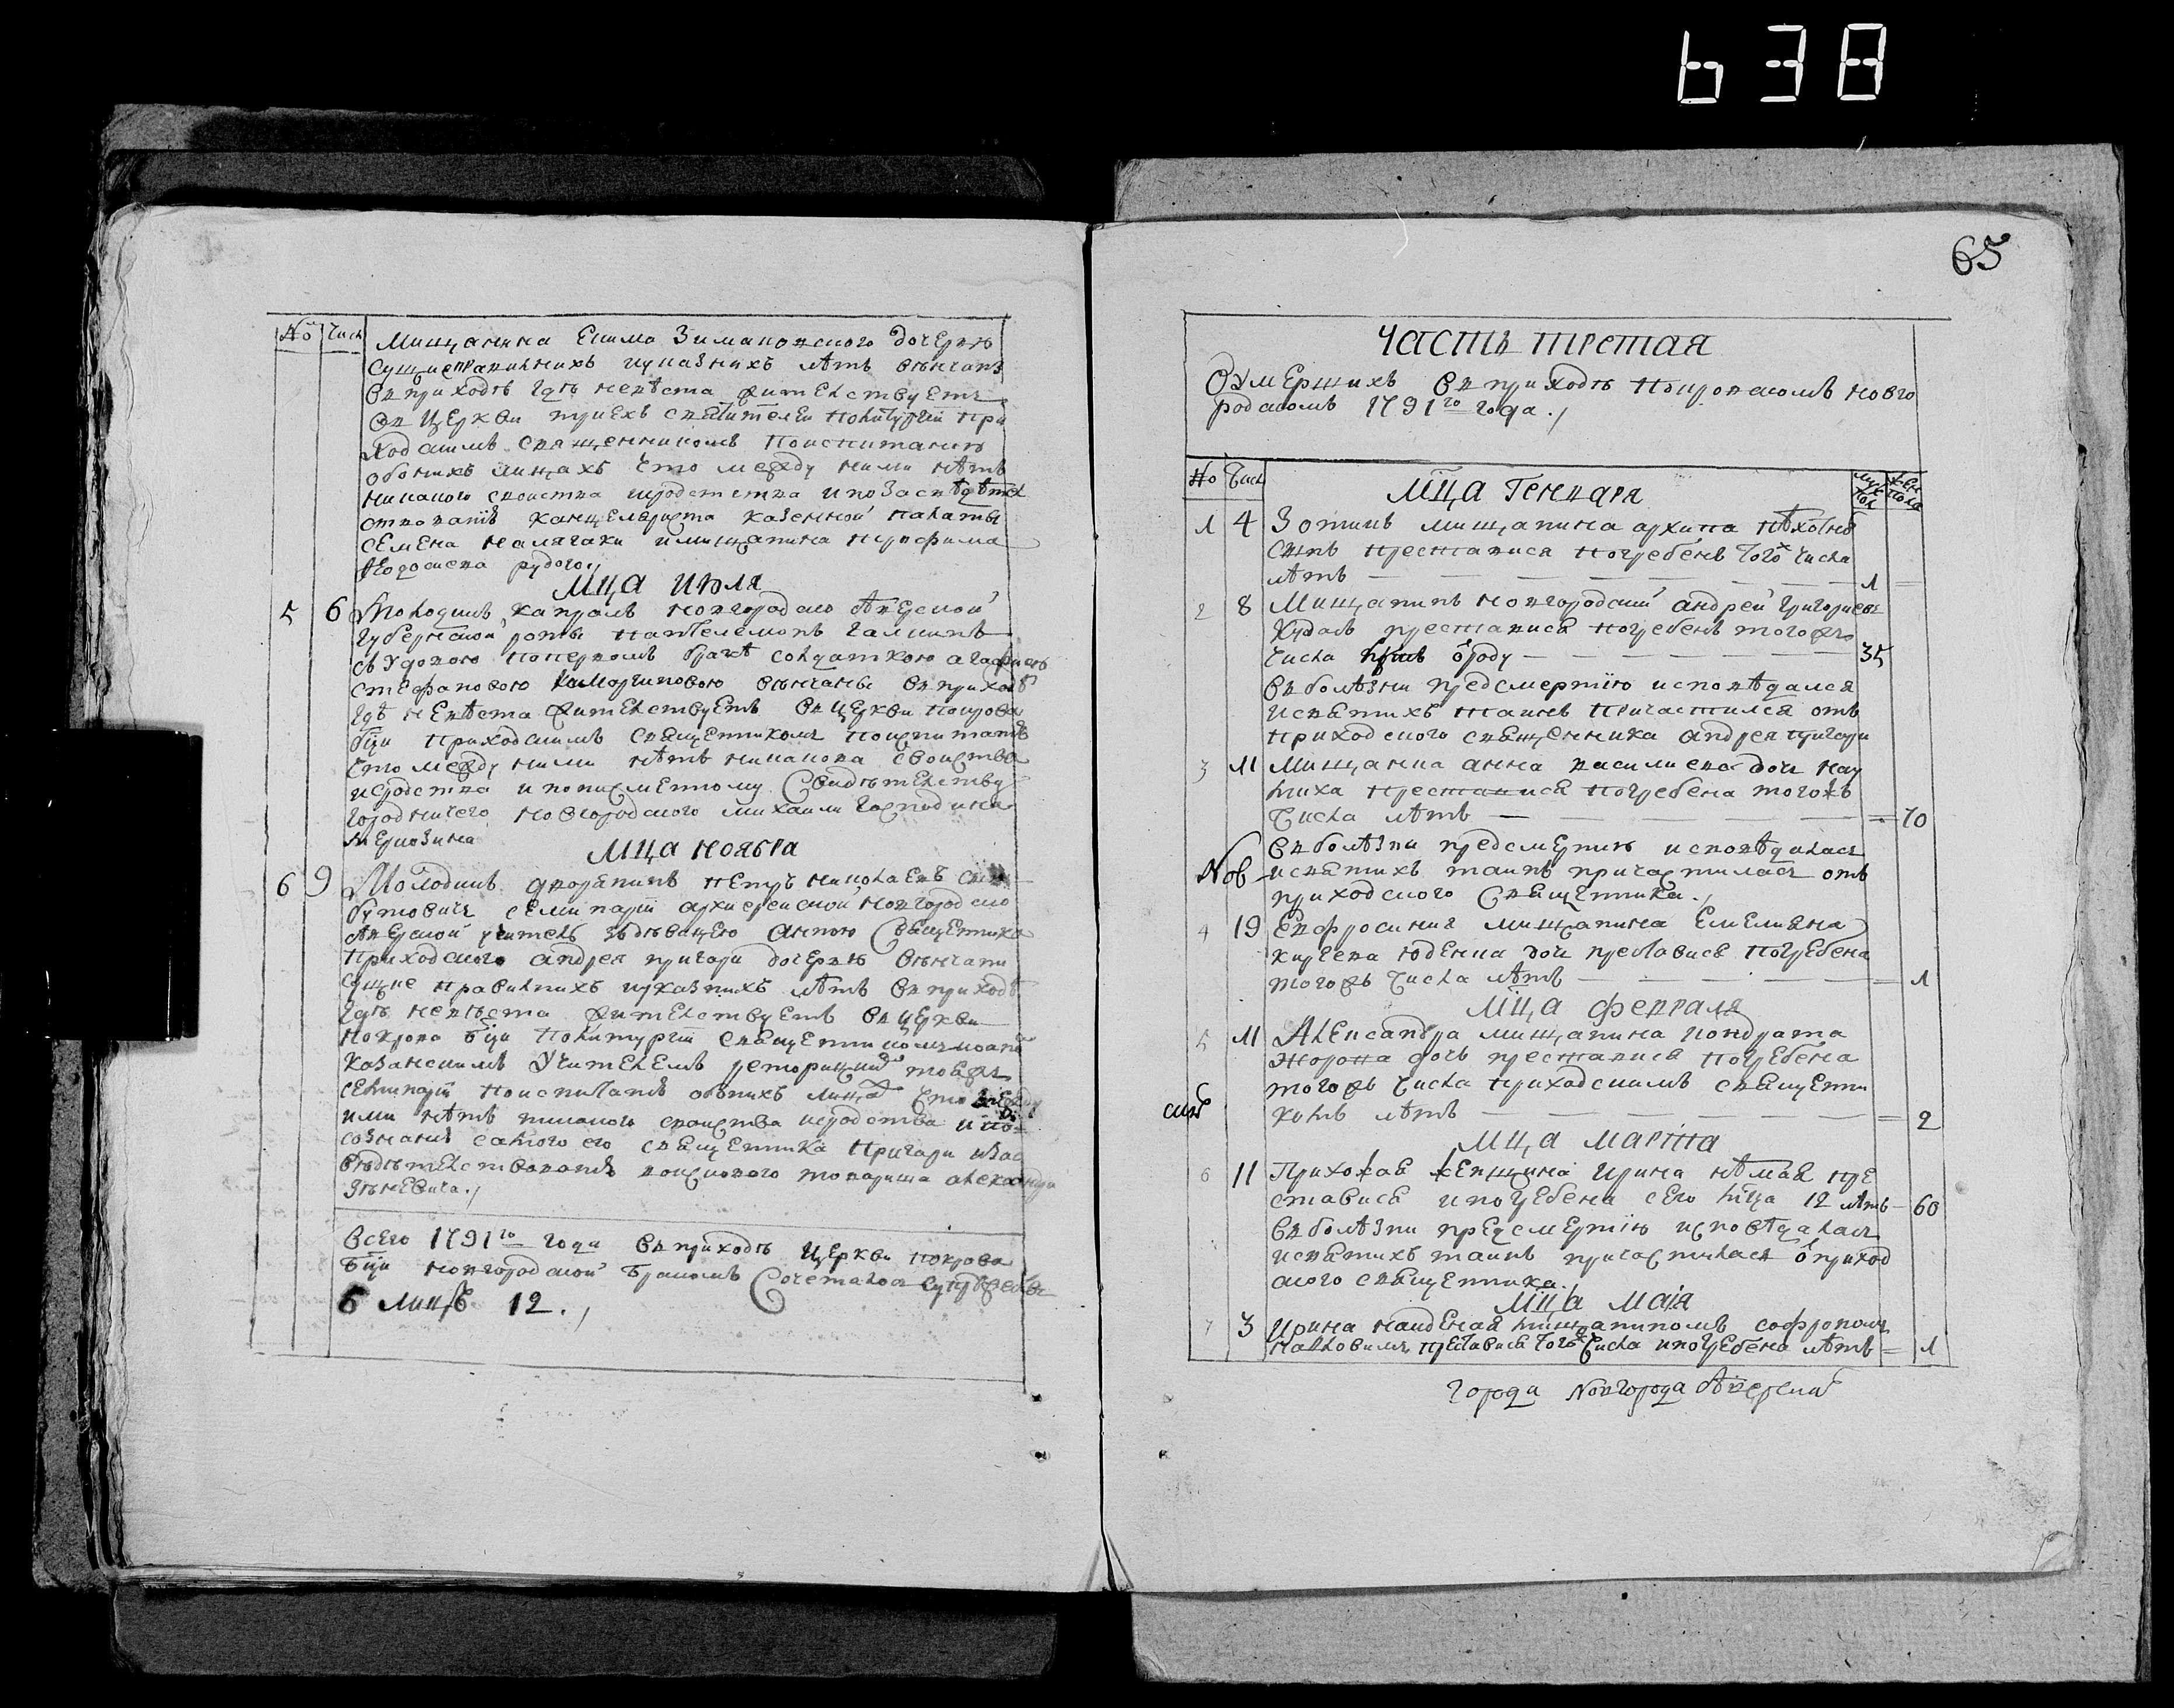 638
№ Числ
Мищанина Екима Зимаковского дочерью
сущи правилних и указних лѣтъ вѣнчанъ
въ приходѣ гдѣ невѣста жителствуетъ
въ церкви триехъ святителей по литургии при
ходскимъ священникомъ по испитанию
обоихъ лицахъ что между ними нѣтъ
никакого своиства и родстства и по засвѣдѣтел
ствованіѣ канцеляриста казенной палаты
Семена и мищанина Трофима
Федосиева рудого
Мца Июля
5 6 Молодикъ капралъ новгородско сѣверской
губернской роты Пантелемонъ Галкинъ
съ удовою по первомъ бракѣ солдаткою агафиею
стефановою вѣнчаны въ приходѣ
гдѣ невѣста жителствуетъ въ церкви покрова
бци приходскимъ священникомъ по испитаніѣ
что между ними нѣтъ никакова своиства
и родства и по писменному свидѣтелству
городничего новгородского михаили господина
Мца Ноября
6 9 Молодикъ дворянинъ петръ николаевъ сынъ
бутовичъ семинарій архиерейской новгородско
сѣверской учитель зъ дѣвицею анною священника
приходского андрея пригари дочерью вѣнчани
сущие правилнихъ и указнихъ лѣтъ въ приходѣ
гдѣ невѣста жителствуетъ въ церкви
покрова бци по литургіи священникомъ иоаном
казанскимъ учителемъ реторицкий тоеяжъ
семинарій по испитаніѣ обоихъ лица что между
ими нѣтъ никакого своиства и родства и по
сознаніѣ самого его священника пригари и зас
вѣдѣтелствованіѣ воискового товариша александра
Всего 1791го года въ приходѣ церкви покрова
бци новгородской бракомъ сочеталося супружества
6 лицъ 12.
65
Часть третая
О умершихъ въ приходѣ покровскомъ новго
родскомъ 1791го года
№ Числ
Мца Генваря
муж пол жен пола
1 4 Зотикъ мищанина архипа
синъ преставися погребенъ того ж числа
лѣтъ 1
2 8 Мищанинъ новгородский андрей григориевъ
преставися погребенъ тогожъ
числа 35
въ болѣзни предсмертію исповѣдался
и святихъ таинъ причастился отъ
приходского священника андрея пригари
3 11 Мищанка анна василиева дочъ
преставися погребена тогожъ
числа лѣтъ 70
въ болѣзни предсмертию исповѣдилася
Nов и святихъ таинъ причастилася отъ
приходского священника
4 19 Евфросиния мищанина Емелияна
дочъ преставися погребена
тогожъ числа лѣтъ 1
Мца февраля
5 11 Александра мищанина Кондрата
дочъ преставися погребена
тогожъ числа приходскимъ священни
комъ лѣтъ 2
Мца Марта
6 11 Прихожая женщина Ирина нѣмая пре
ставися и погребена сего мца 12 лѣтъ 60
въ болѣзни предсмертію исповѣдалася
и святихъ таинъ причастилася ѿ приход
ского священника.
Мца Маія
7 3 Ирина найденая мищанином софроном
преставися того ж числа и погребена лѣтъ 1
города Nовгорода Сѣверский